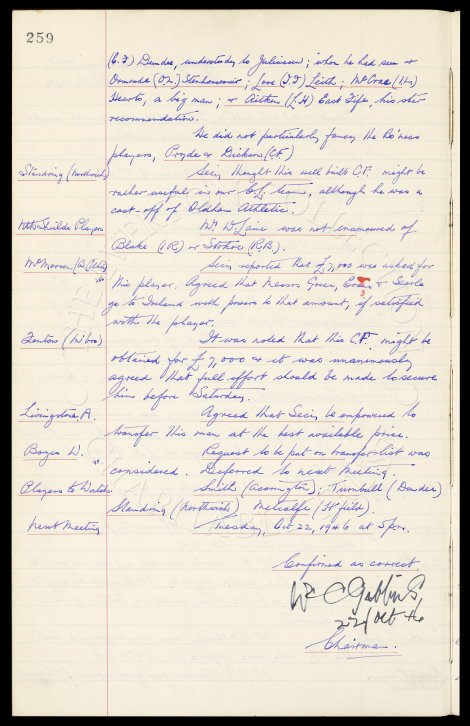 259
(C.F) Dundee, understudy to Juliussen; whom he had seen &
Ormonde (O.L.) Stenhousemuir; Love (I.F) Leith; McCrae (I.L.)
Hearts, a big man; & Aitken (L.H) East Fife, his star
recommendation.
He did not particularly fancy the Bo'ness
players, Pryde or Dickson (C.F.)
Standring (Northwich) Secy thought this well built C.F. might be
rather useful in our C.L. team, although he was a
cast-off of Oldham Athletic.
Nth Shields Players Mr. W. Lane was not enamoured of
Blake (I.R) or Stokoe (R.B.).
McMorran (B. Celtic) Secy reported that £7,000 was asked for
this player. Agreed that Messrs Green, & Searle
go to Ireland with powers to that amount, if satisfied
with the player.
Fenton (M'bro) It was noted that this C.F. might be
obtained for £7,000 & it was unanimously
agreed that full effort should be made to secure
him before Saturday.
Livingstone A. Agreed that Secy be empowered to
transfer this man at the best available price.
Boyes W. Request to be put on transfer list was
considered. Deferred to next meeting.
Players to Watch Smith (Accrington); Turnbull (Dundee)
Standring (Northwich) Metcalfe (H'field).
Next Meeting Tuesday, Oct 22, 1946 at 5pm.
Confirmed as correct.
Wm C Gibbins,
22/Oct 46
Chairman.